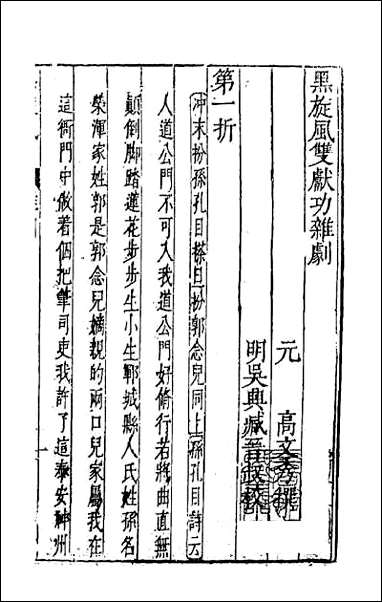 黑旋風雙獻功雜劇
元　高文秀撰
明吳興臧晉叔校
第一折
沖末扮孫孔目搽旦扮郭念兒同上孫孔目詩云
人道公門不可入我道公門好脩行若將曲直無
顛倒脚踏蓮花步步生小生鄆城縣人氏姓孫名
榮渾家姓郭是郭念兒嫡親的兩口兒家屬我在
這衙門中做着個把筆司吏我許了這泰安神州